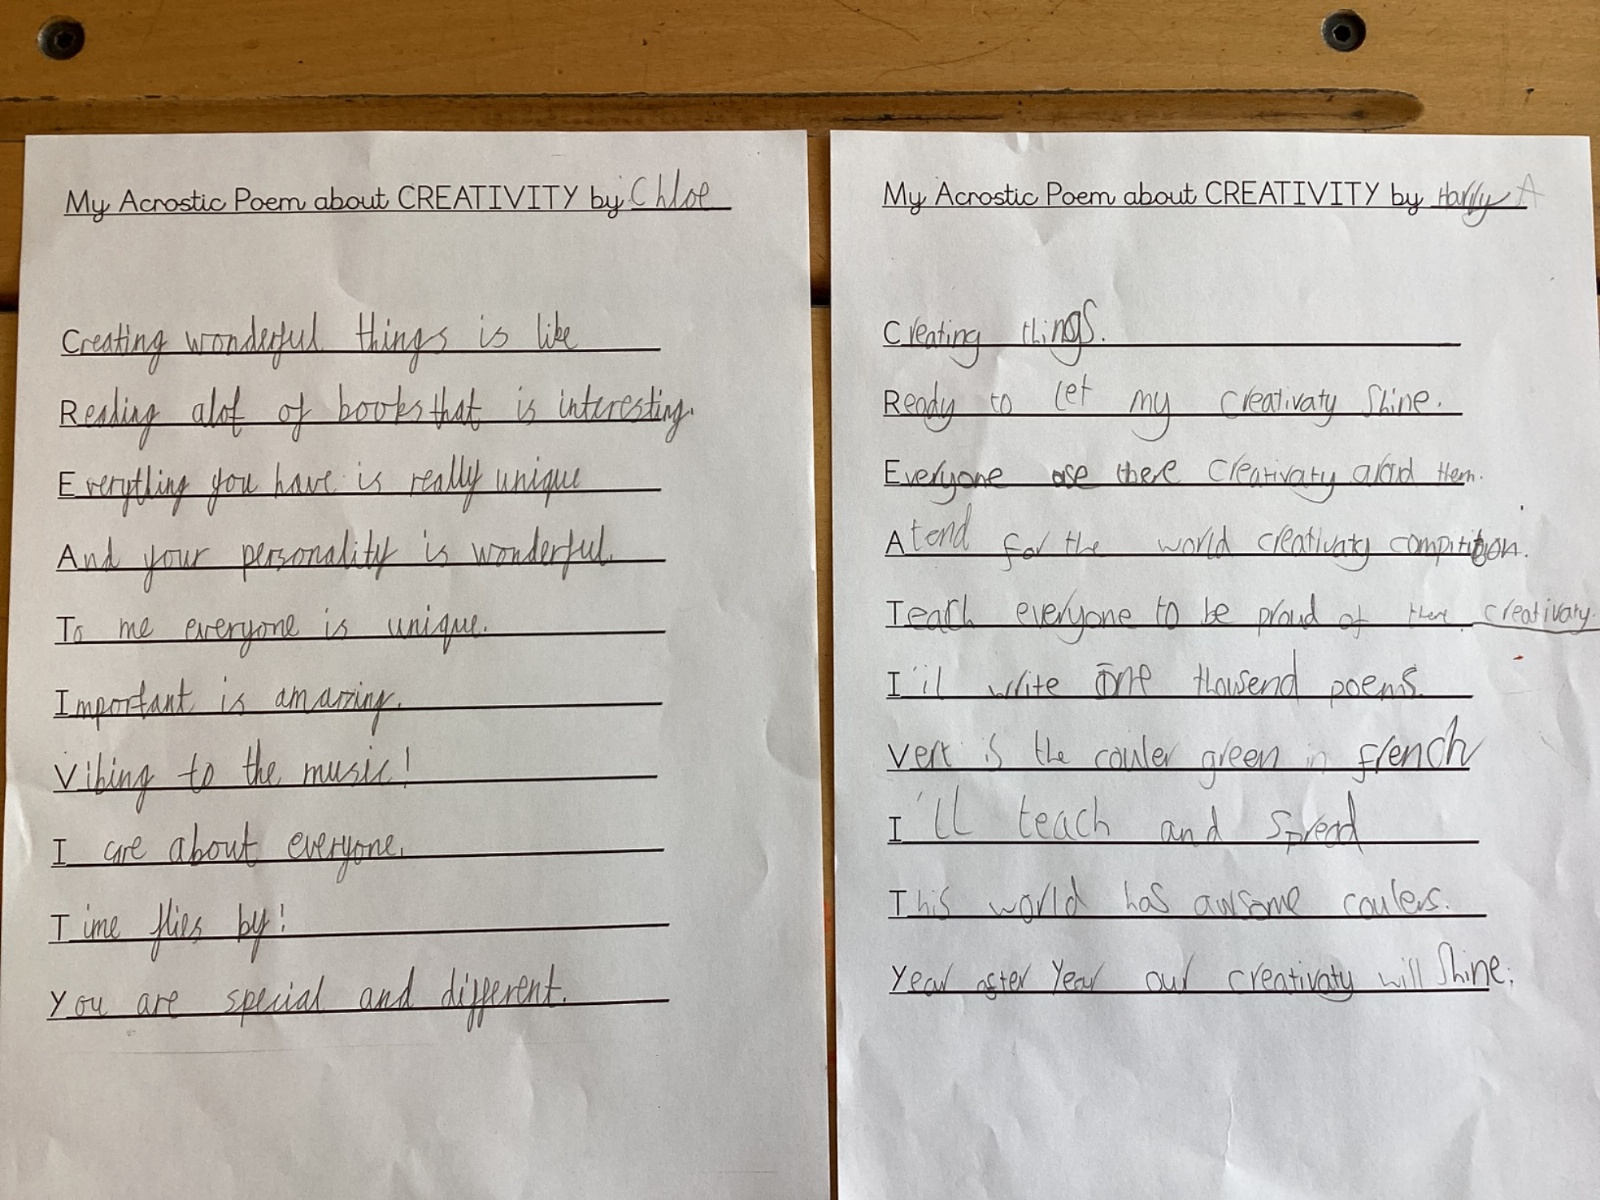 My Acrostic Poem about CREATIVITY by Chloe
Creating wonderful things is like
Reading alot of books that is interesting.
Everything you have is really unique
And your personality is wonderful.
To me everyone is unique.
Important is amazing.
Vibing to the music!
I care about everyone.
Time flies by!
You are special and different.
My Acrostic Poem about CREATIVITY by Harry A
Creating things.
Ready to let my creativaty shine.
Everyone use there creativaty them.
Atend for the world creativaty compitition.
Teach everyone to be proud of there creativaty.
I'il write one thousend poems.
Vert is the couler green in french
I'll teach and spread
This world has awsome coulers.
Year after Year our creativaty will shine.